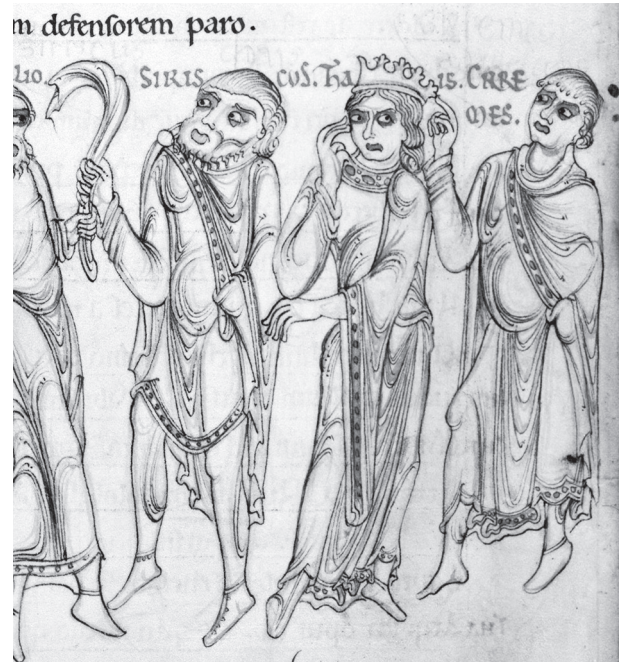 m defensorem paro.
LIO. SIRIS CUS. THA IS. CRRE
MES.